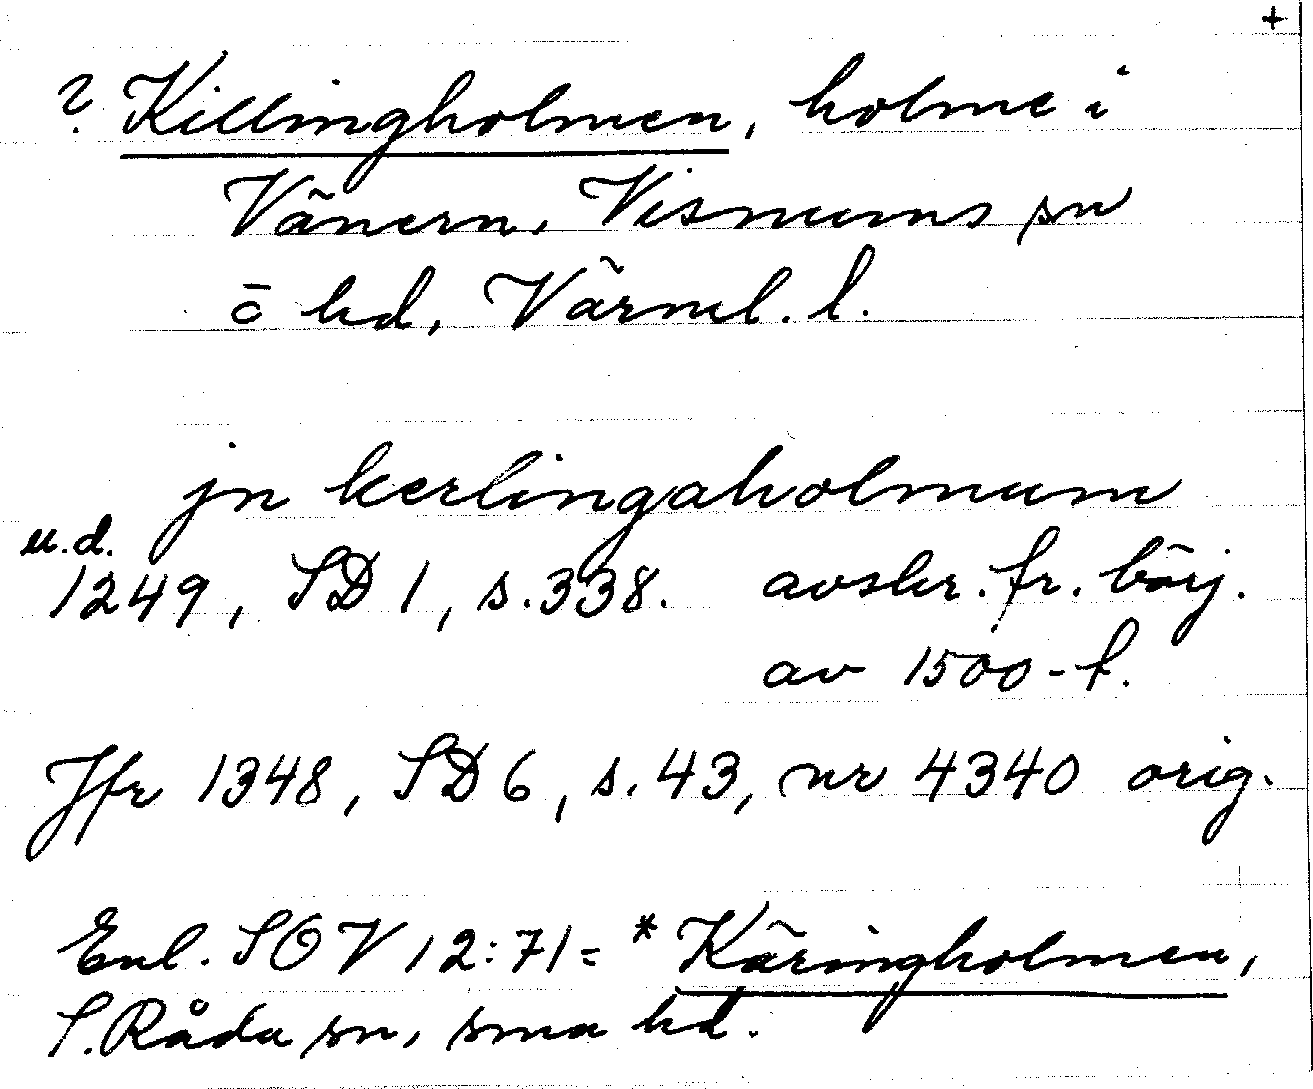 +
? Killingholmen, holme i
Vänern, Visnums sn
o hd, Värml. l.
jn kerlingaholmum
u.d.
1249, SD 1, s. 338. avskr. fr. börj.
av 1500-t.
Jfr 1348, SD 6, s. 43, nr 4340 orig.
Enl. SOV 12:71 = *Käringholmen,
S. Råda sn, sma hd.